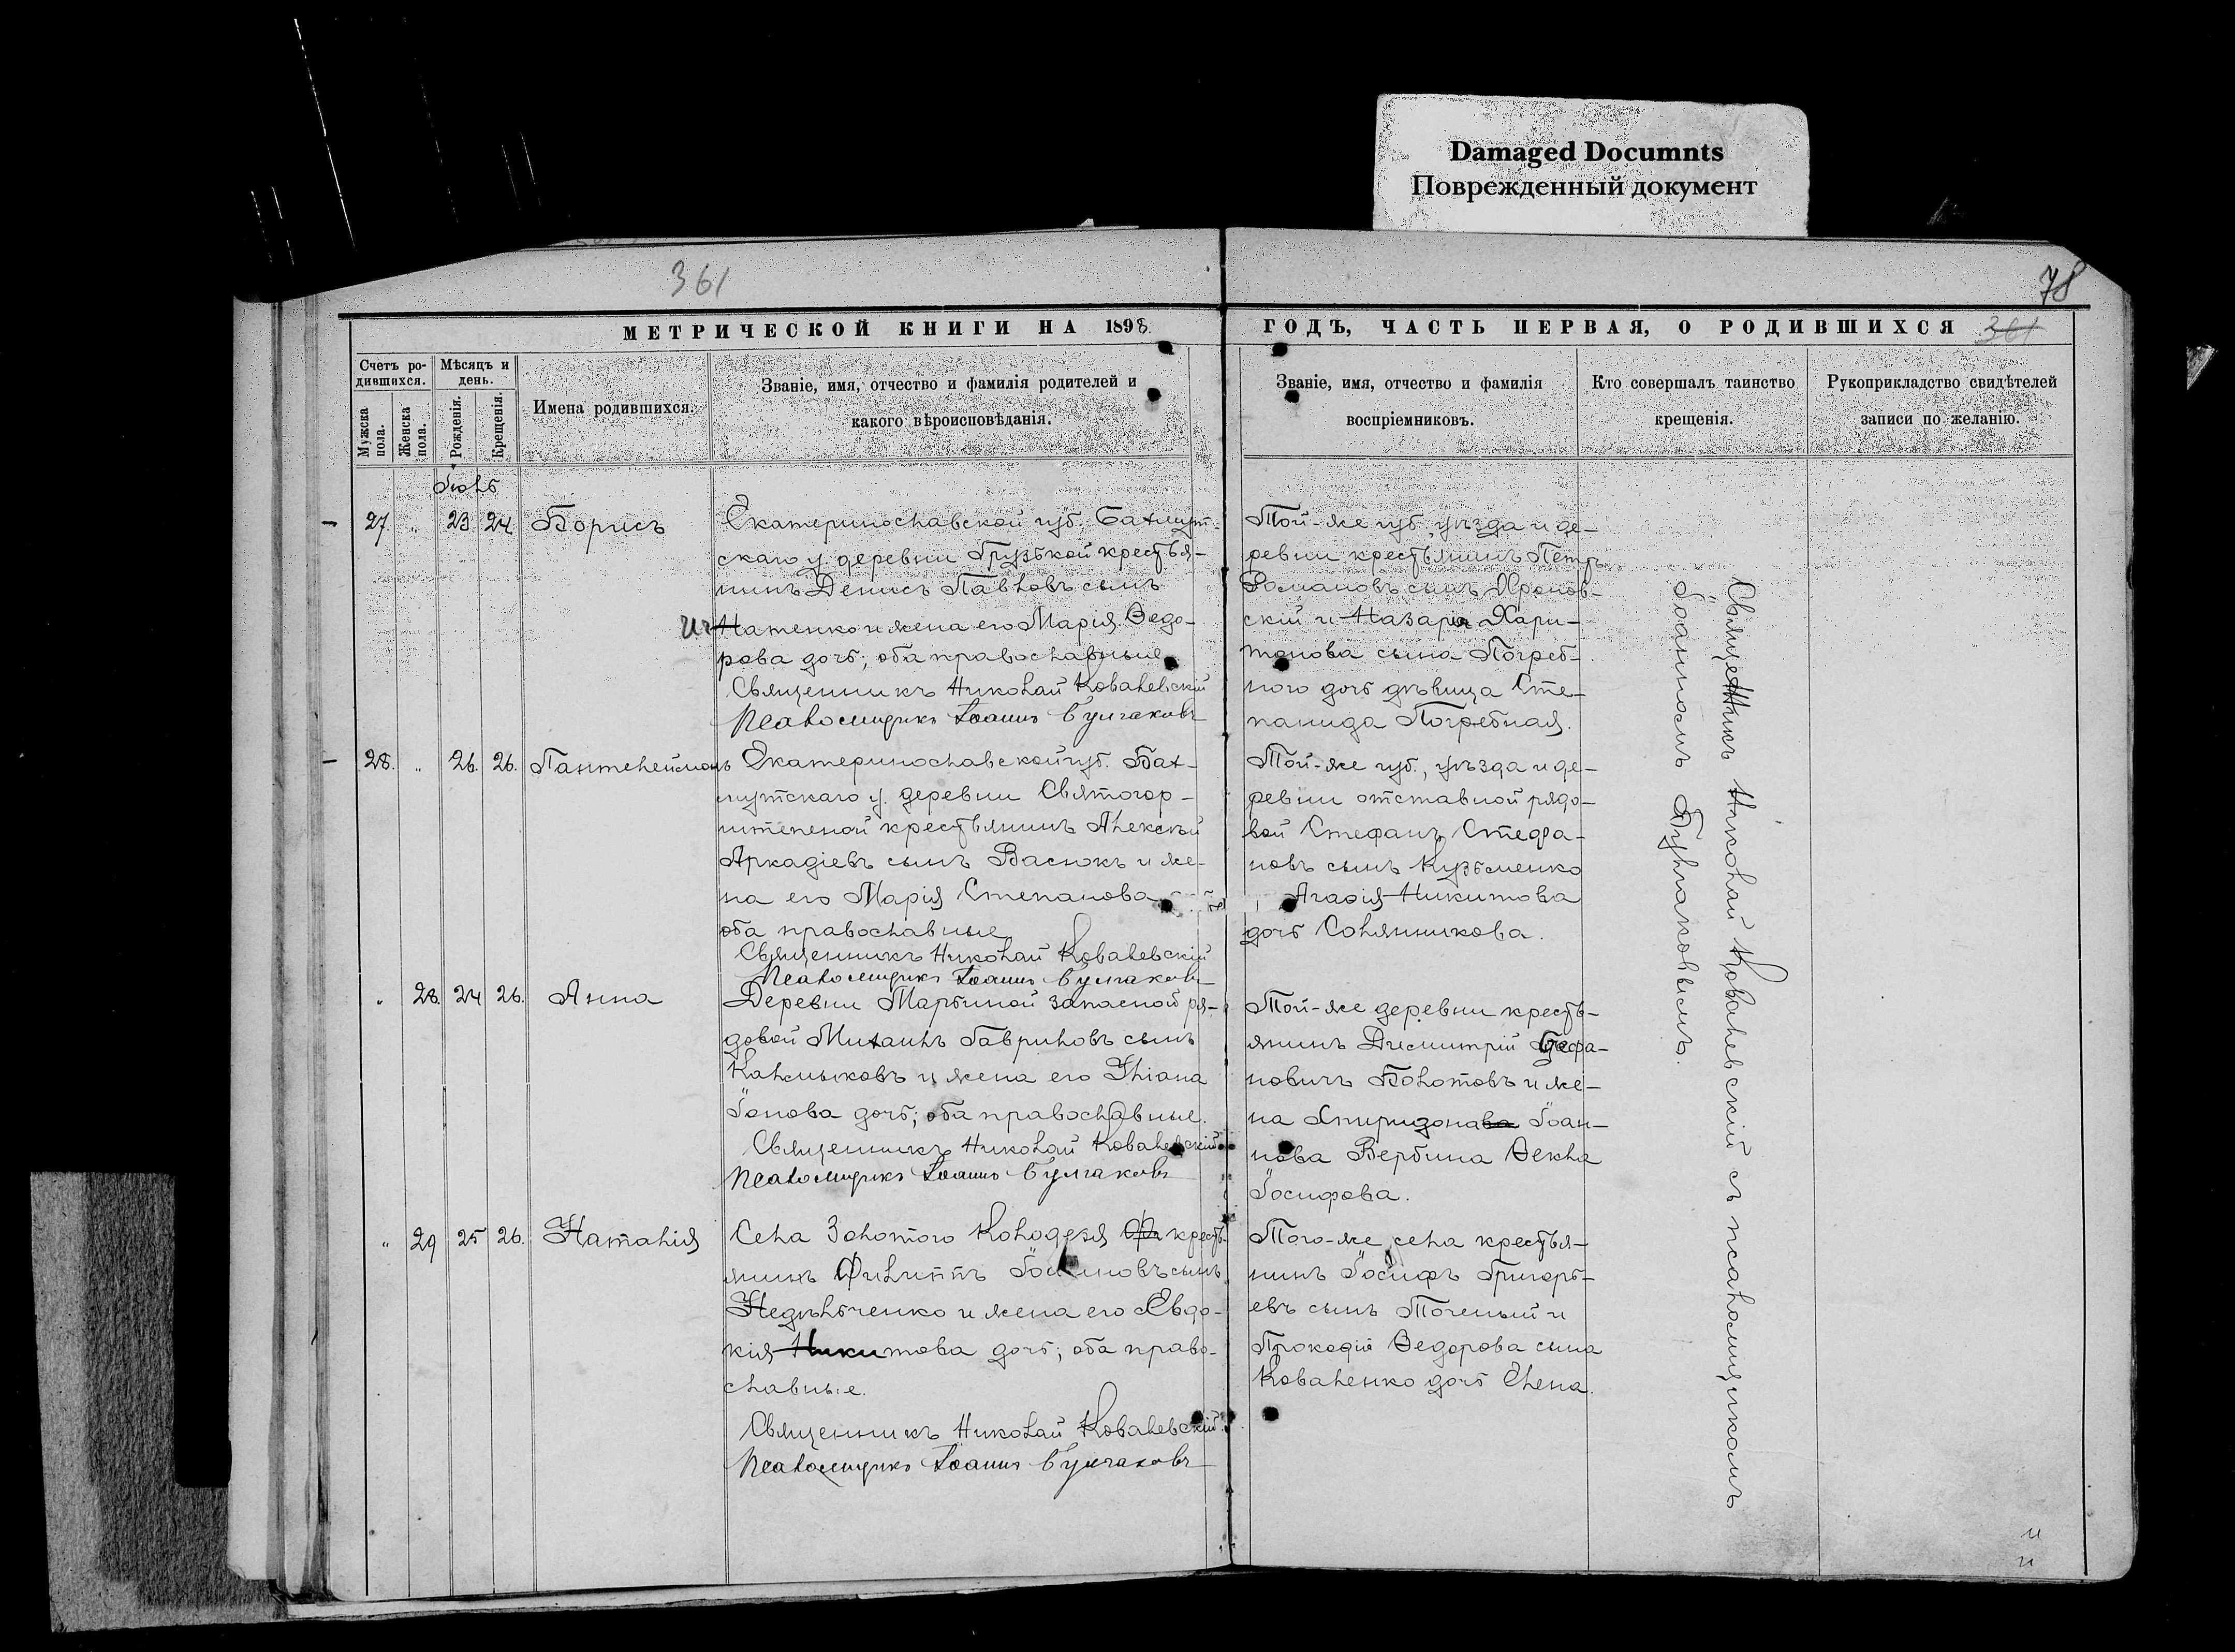 Damaged Documnts
Поврежденный документ
361
78
МЕТРИЧЕСКОЙ КНИГИ НА 1898
ГОДЪ, ЧАСТЬ ПЕРВАЯ, О РОДИВШИХСЯ
361
Счетъ ро-
дившихся.
Мужска
пола.
Женска
пола.
Мѣсяцъ и
день.
Рожденія.
Крещенія.
Имена родившихся.
Званіе, имя, отчество и фамилія родителей и
какого вѣроисповѣданія.
Званіе, имя, отчество и фамилія
воспріемниковъ.
Кто совершалъ таинство
крещенія.
Рукоприкладство свидѣтелей
записи по желанію.
27. " 23. 24. Борисъ
Екатеринославской губ. Бахмут-
скаго у. деревни Грузской крестья-
нинъ Денисъ Павловъ сынъ
Натенко и жена его Марія Ѳедо-
рова дочь; оба православные
Священникъ Николай Ковалевскій
Псаломщикъ Іоаннъ Булгаковъ
Той-же губ., уѣзда и де-
ревни крестьянинъ Петръ
Романовъ сынъ
скій и Назарія Хари-
тонова сына Погреб-
ного дочь дѣвица Сте-
панида Погребная.
28. " 26. 26. Пантелеймонъ
Екатеринославской губ. Бах-
мутскаго у. деревни Святогор-
крестьянинъ Алексѣй
Аркадіевъ сынъ Васюкъ и же-
на его Марія Степанова
оба православные
Священникъ Николай Ковалевскій
Псаломщикъ Іоаннъ Булгаковъ
Той-же губ., уѣзда и де-
ревни отставной рядо-
вой Стефанъ Стефа-
новъ сынъ Кузьменко
Агафія Никитова
дочь Солянникова.
" 28. 24 26. Анна
Деревни Марьиной запасной ря-
довой Михаилъ Гавриловъ сынъ
Калмыковъ и жена его Уліана
Іонова дочь; оба православные.
Священникъ Николай Ковалевскій
Псаломщикъ Іоаннъ Булгаковъ
Той-же деревни кресть-
янинъ Димитрій Стефа-
новичъ Болотовъ и же-
на Спиридонава Іоан-
нова Вербина Ѳекла
Іосифова.
" 29 25 26. Наталія
Села Золотого Колодезя кресть-
янинъ Филиппъ сынъ
Недѣльченко и жена его Евдо-
кія Никитова дочь; оба право-
славные.
Священникъ Николай Ковалевскій.
Псаломщикъ Іоаннъ Булгаковъ
Того-же села крестья-
нинъ Іосифъ Григорь-
евъ сынъ Точеный и
Прокофія Ѳедорова сына
Коваленко дочь Елена.
Священникъ Николай Ковалевскій съ псаломщикомъ
Іоанномъ Булгаковымъ.